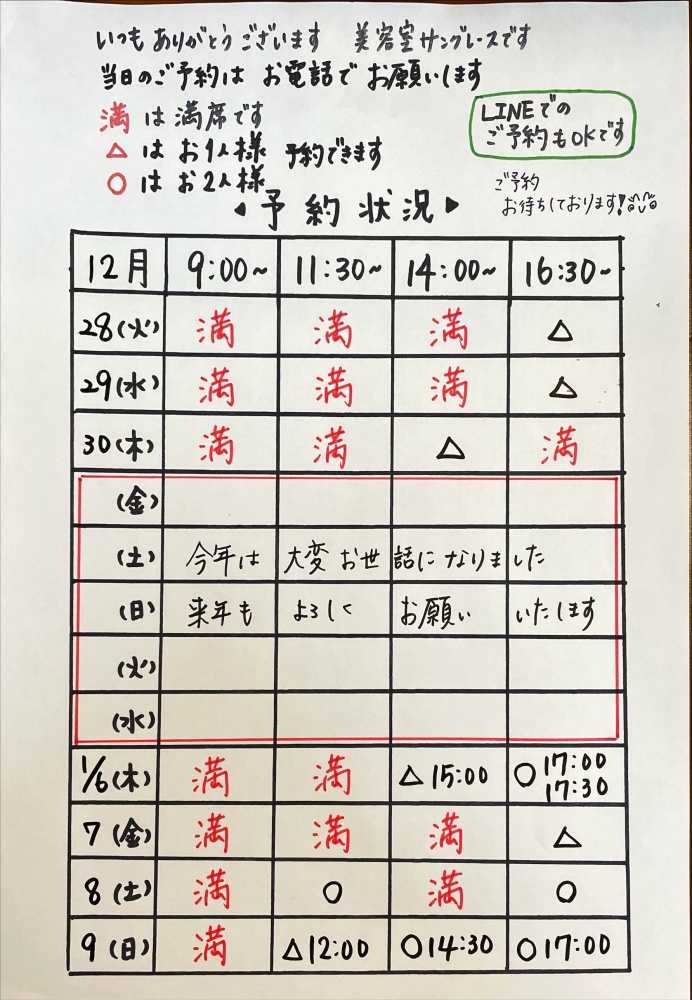 いつもありがとうございます 美容室サングレースです
当日のご予約は お電話で お願いします
満 は 満席です
△ は お1人様 予約できます
○ は お2人様
LINEでの
ご予約もOKです
ご予約
お待ちしております!
◀予約状況▶
12月 9:00~ 11:30~ 14:00~ 16:30~
28(火) 満 満 満 △
29(水) 満 満 満 △
30(木) 満 満 △ 満
(金)
(土) 今年は 大変お世話になりました
(日) 来年も よろしく お願い いたします
(火)
(水)
1/6(木) 満 満 △15:00 ○17:00 17:30
7(金) 満 満 満 △
8(土) 満 ○ 満 ○
9(日) 満 △12:00 ○14:30 ○17:00